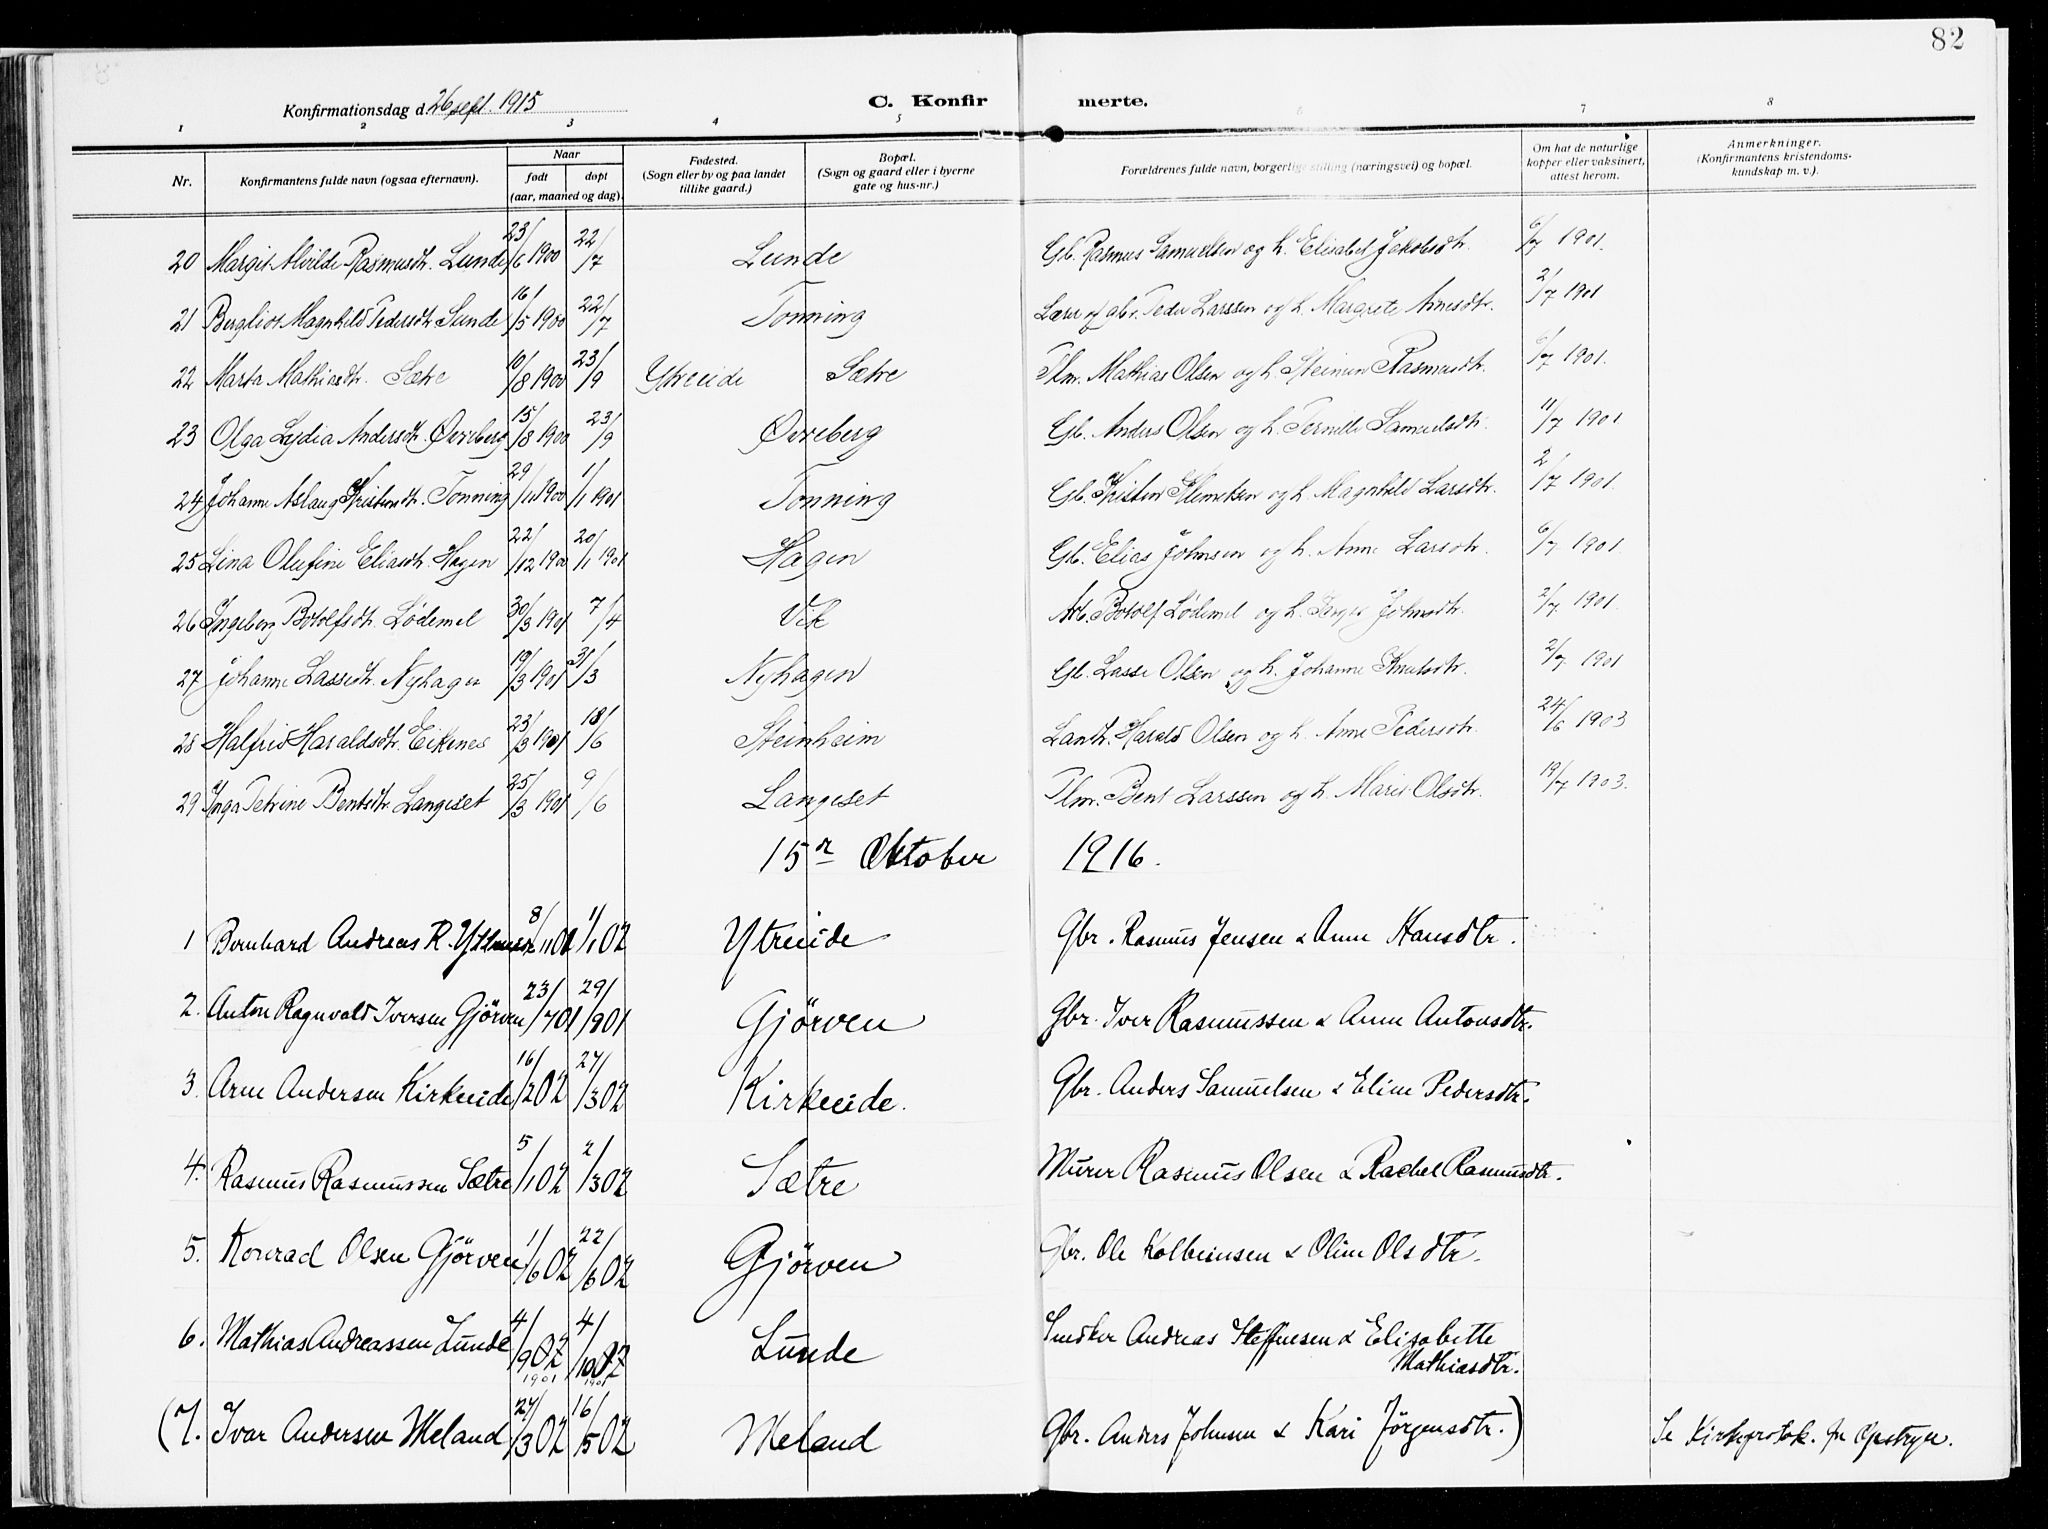 82
Konfirmationsdag d. 26 sept. 1915
C. Konfirmerte.
1 2 3 4 5 6 7 8
Nr.
Konfirmantens fulde navn (ogsaa efternavn).
Naar
født
døpt
(aar, maaned og dag).
Fødested.
(Sogn eller by og paa landet
tillike gaard.)
Bopæl.
(Sogn og gaard eller i byerne
gate og hus-nr.)
Forældrenes fulde navn, borgerlige stilling (næringsvei) og bopæl.
Om hat de naturlige
kopper eller vaksinert,
attest herom.
Anmerkninger.
(Konfirmantens kristendoms-
kundskap m. v.).
20 Margit Alvilde Rasmusdtr. Lunde 23/6 1900 22/7 Lunde Gb. Rasmus Samuelsen og h. Elisabet Jakobsdtr. 6/7 1901.
21 Bergliot Magnhild Pedersdtr. Lunde 16/5 1900 22/7 Tonning Lærer og gbr. Peder Larssen og h. Margrete Arnesdtr. 2/7 1901
22 Marta Mathiasdtr. Sætre 10/8 1900 23/9 Ytreeide Sætre Plm. Mathias Olsen og h. Steinun Rasmusdtr. 6/7 1901.
23 Olga Lydia Andersdtr. Øvreberg 15/8 1900 23/9 Øvreberg Gb. Anders Olsen og h. Pernille Samuelsdtr. 11/7 1901
24 Johanne Aslaug Kristendtr. Tonning 29/11 1900 1/1 1901 Tonning Gb. Kristen Klemetsen og h. Magnhild Larsdtr. 2/7 1901.
25 Lina Olufine Eliasdtr. Hagen 22/12 1900 20/1 1901 Hagen Gb. Elias Johnsen og h. Anne Larsdtr. 6/7 1901.
26 Ingeborg Botolfsdtr. Lødemel 30/3 1901 7/4 Vik Arb. Botolf Lødemel og h. Johnsdtr. 2/7 1901.
27 Johanne Lassedtr. Nyhagen 19/3 1901 31/3 Nyhagen Gb. Lasse Olsen og h. Johanne Knutsdtr. 2/7 1901
28 Halfrid Haraldsdtr. Eikenes 23/3 1901 18/6 Steinheim Landh. Harald Olsen og h. Anne Pedersdtr. 24/6 1903
29 Inga Petrine Bentsdtr. Langeset 25/3 1901 9/6 Langeset Plm. Bent Larssen og h. Marie Olsdtr. 19/7 1903.
15de Oktober 1916.
1 Bernhard Andreas R. 8/11 01 1/1 02 Ytreeide Gbr. Rasmus Jensen & Anne Hansdtr.
2. Anton Ragnvald Iversen Gjörven 23/7 01 29/9 01 Gjörven Gbr. Iver Rasmussen & Anne Antonsdtr.
3. Arne Andersen Kirkeeide 16/2 02 27/3 02 Kirkeeide. Gbr. Anders Samuelsen & Eline Pedersdtr.
4. Rasmus Rasmussen Sætre 5/1 02 2/3 02 Sætre Murer Rasmus Olsen & Rachel Rasmusdtr.
5. Konrad Olsen Gjörven 1/6 02 22/6 02 Gjörven Gbr. Ole Kolbeinsen & Oline Olsdtr.
6. Mathias Andreassen Lunde 4/9 02 4/10 02 Lunde Snedker Andreas Steffensen & Elisabette
1901 1901 Mathiasdtr.
(7. Ivar Andersen Meland 27/3 02 16/5 02 Meland Gbr. Anders Johnsen & Kari Jörgensdtr.) Se Kirkeprotok. for Opstryn.